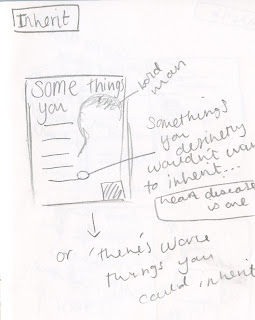 Inherit
Some things
you
bald
man
Somethings
you
wouldn't wan
to inherit...
heart disease
is one
or 'there's worse
things you
could inherit